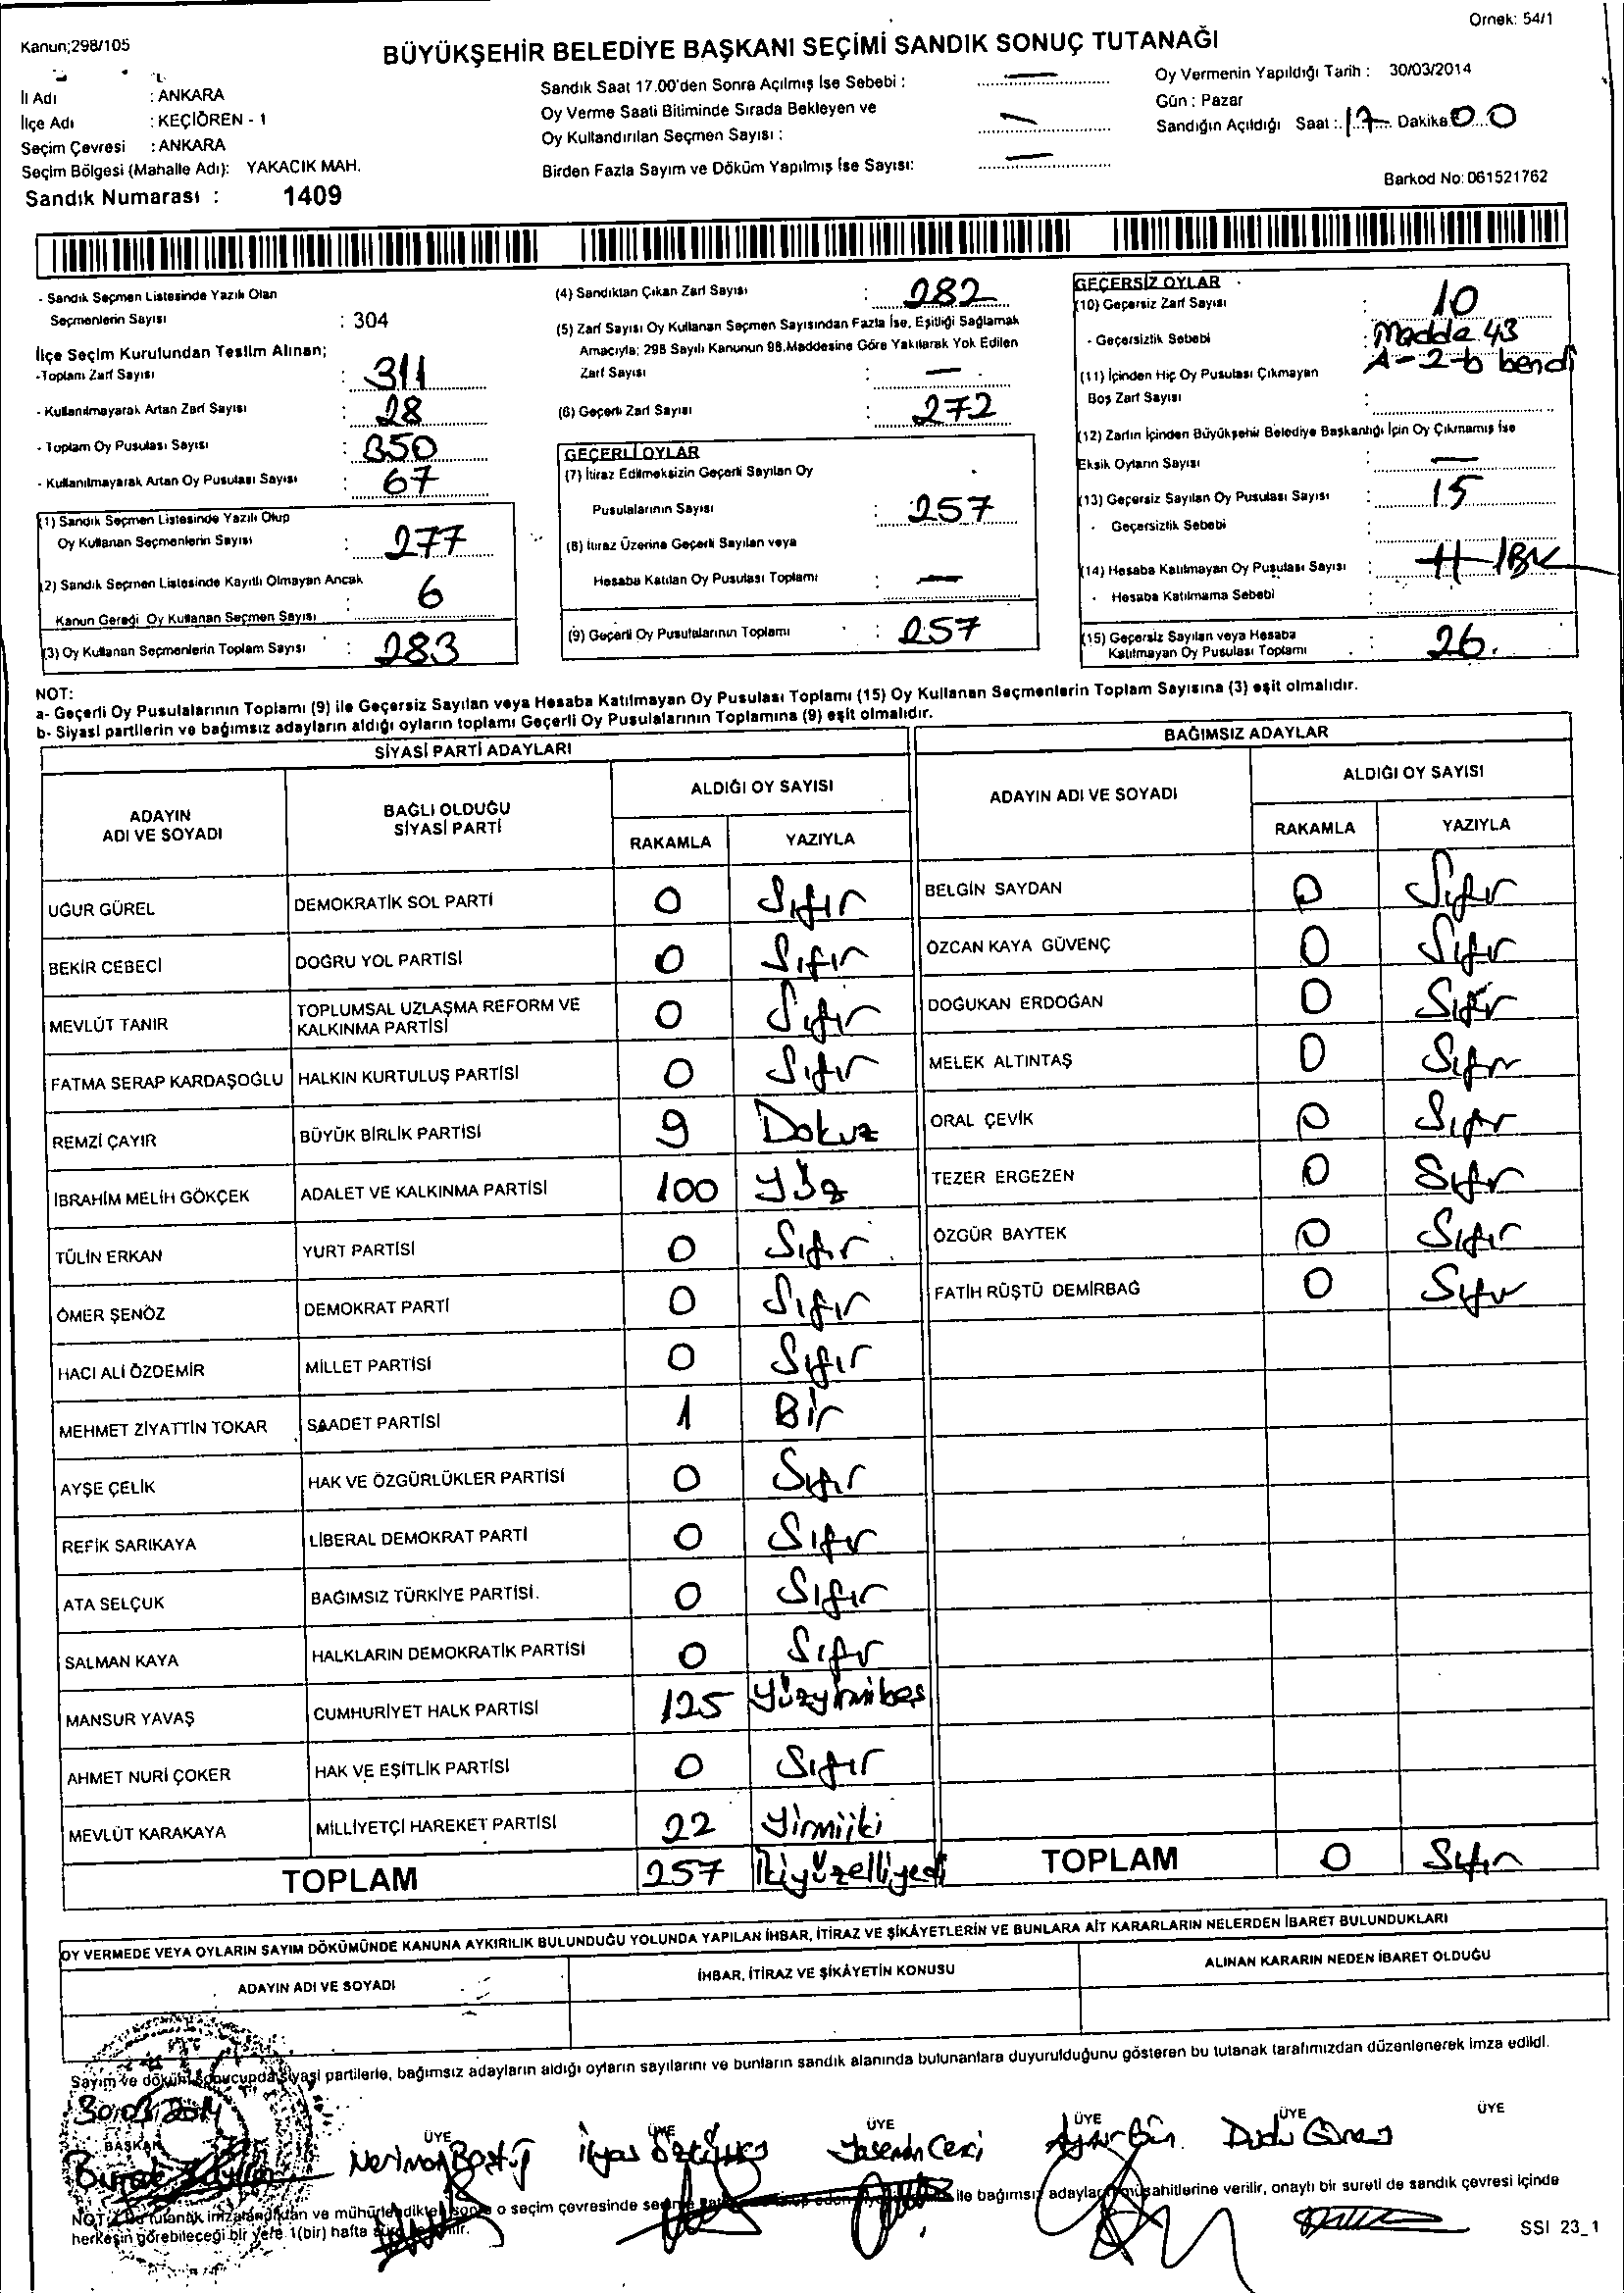 Ornek: 54/1
Kanun;298/105
BÜYÜKŞEHİR BELEDİYE BAŞKANI SEÇİMİ SANDIK SONUÇ TUTANAĞI
İl Adı : ANKARA
İlçe Adı : KEÇİÖREN - 1
Seçim Çevresi : ANKARA
Seçim Bölgesi (Mahalle Adı): YAKACIK MAH.
Sandık Numarası : 1409
Sandık Saat 17.00'den Sonra Açılmış İse Sebebi : —
Oy Verme Saati Bitiminde Sırada Bekleyen ve
Oy Kullandırılan Seçmen Sayısı : —
Birden Fazla Sayım ve Döküm Yapılmış İse Sayısı: —
Oy Vermenin Yapıldığı Tarih : 30/03/2014
Gün : Pazar
Sandığın Açıldığı Saat : 17 Dakika 00
Barkod No: 061521762
- Sandık Seçmen Listesinde Yazılı Olan
Seçmenlerin Sayısı : 304
İlçe Seçim Kurulundan Teslim Alınan;
-Toplam Zarf Sayısı : 311
- Kullanılmayarak Artan Zarf Sayısı : 28
- Toplam Oy Pusulası Sayısı : 350
- Kullanılmayarak Artan Oy Pusulası Sayısı : 67
(1) Sandık Seçmen Listesinde Yazılı Olup
Oy Kullanan Seçmenlerin Sayısı : 277
(2) Sandık Seçmen Listesinde Kayıtlı Olmayan Ancak
Kanun Gereği Oy Kullanan Seçmen Sayısı : 6
(3) Oy Kullanan Seçmenlerin Toplam Sayısı : 283
(4) Sandıktan Çıkan Zarf Sayısı : 282
(5) Zarf Sayısı Oy Kullanan Seçmen Sayısından Fazla İse, Eşitliği Sağlamak
Amacıyla; 298 Sayılı Kanunun 98.Maddesine Göre Yakılarak Yok Edilen
Zarf Sayısı : —
(6) Geçerli Zarf Sayısı : 272
GEÇERLİ OYLAR
(7) İtiraz Edilmeksizin Geçerli Sayılan Oy
Pusulalarının Sayısı : 257
(8) İtiraz Üzerine Geçerli Sayılan veya
Hesaba Katılan Oy Pusulası Toplamı : —
(9) Geçerli Oy Pusulalarının Toplamı : 257
GEÇERSİZ OYLAR
(10) Geçersiz Zarf Sayısı : 10
- Geçersizlik Sebebi : Madde 43
A-2-b bendi
(11) İçinden Hiç Oy Pusulası Çıkmayan
Boş Zarf Sayısı :
(12) Zarfın İçinden Büyükşehir Belediye Başkanlığı İçin Oy Çıkmamış İse
Eksik Oyların Sayısı : —
(13) Geçersiz Sayılan Oy Pusulası Sayısı : 15
- Geçersizlik Sebebi :
(14) Hesaba Katılmayan Oy Pusulası Sayısı :
- Hesaba Katılmama Sebebi :
(15) Geçersiz Sayılan veya Hesaba
Katılmayan Oy Pusulası Toplamı : 26.
NOT:
a- Geçerli Oy Pusulalarının Toplamı (9) ile Geçersiz Sayılan veya Hesaba Katılmayan Oy Pusulası Toplamı (15) Oy Kullanan Seçmenlerin Toplam Sayısına (3) eşit olmalıdır.
b- Siyasi partilerin ve bağımsız adayların aldığı oyların toplamı Geçerli Oy Pusulalarının Toplamına (9) eşit olmalıdır.
SİYASİ PARTİ ADAYLARI
ADAYIN ADI VE SOYADI
BAĞLI OLDUĞU SİYASİ PARTİ
ALDIĞI OY SAYISI
RAKAMLA YAZIYLA
UĞUR GÜREL DEMOKRATİK SOL PARTİ 0 Sıfır
BEKİR CEBECİ DOĞRU YOL PARTİSİ 0 Sıfır
MEVLÜT TANIR TOPLUMSAL UZLAŞMA REFORM VE KALKINMA PARTİSİ 0 Sıfır
FATMA SERAP KARDAŞOĞLU HALKIN KURTULUŞ PARTİSİ 0 Sıfır
REMZİ ÇAYIR BÜYÜK BİRLİK PARTİSİ 9 Dokuz
İBRAHİM MELİH GÖKÇEK ADALET VE KALKINMA PARTİSİ 100 Yüz
TÜLİN ERKAN YURT PARTİSİ 0 Sıfır
ÖMER ŞENÖZ DEMOKRAT PARTİ 0 Sıfır
HACI ALİ ÖZDEMİR MİLLET PARTİSİ 0 Sıfır
MEHMET ZİYATTİN TOKAR SAADET PARTİSİ 1 Bir
AYŞE ÇELİK HAK VE ÖZGÜRLÜKLER PARTİSİ 0 Sıfır
REFİK SARIKAYA LİBERAL DEMOKRAT PARTİ 0 Sıfır
ATA SELÇUK BAĞIMSIZ TÜRKİYE PARTİSİ. 0 Sıfır
SALMAN KAYA HALKLARIN DEMOKRATİK PARTİSİ 0 Sıfır
MANSUR YAVAŞ CUMHURİYET HALK PARTİSİ 125 Yüzyirmibeş
AHMET NURİ ÇOKER HAK VE EŞİTLİK PARTİSİ 0 Sıfır
MEVLÜT KARAKAYA MİLLİYETÇİ HAREKET PARTİSİ 22 Yirmiiki
TOPLAM 257 İkiyüzelliyedi
BAĞIMSIZ ADAYLAR
ADAYIN ADI VE SOYADI
ALDIĞI OY SAYISI
RAKAMLA YAZIYLA
BELGİN SAYDAN 0 Sıfır
ÖZCAN KAYA GÜVENÇ 0 Sıfır
DOĞUKAN ERDOĞAN 0 Sıfır
MELEK ALTINTAŞ 0 Sıfır
ORAL ÇEVİK 0 Sıfır
TEZER ERGEZEN 0 Sıfır
ÖZGÜR BAYTEK 0 Sıfır
FATİH RÜŞTÜ DEMİRBAĞ 0 Sıfır
TOPLAM 0 Sıfır
OY VERMEDE VEYA OYLARIN SAYIM DÖKÜMÜNDE KANUNA AYKIRILIK BULUNDUĞU YOLUNDA YAPILAN İHBAR, İTİRAZ VE ŞİKÂYETLERİN VE BUNLARA AİT KARARLARIN NELERDEN İBARET BULUNDUKLARI
ADAYIN ADI VE SOYADI
İHBAR, İTİRAZ VE ŞİKÂYETİN KONUSU
ALINAN KARARIN NEDEN İBARET OLDUĞU
Sayım ve döküm sonucunda siyasi partilerle, bağımsız adayların aldığı oyların sayılarını ve bunların sandık alanında bulunanlara duyurulduğunu gösteren bu tutanak tarafımızdan düzenlenerek imza edildi.
30.03.2014
BAŞKAN ÜYE ÜYE ÜYE ÜYE ÜYE ÜYE
Neriman İlyas Yasemin Dudu
NOT: Bu tutanak imzalandıktan ve mühürlendikten sonra o seçim çevresinde ile bağımsız adayların müşahitlerine verilir, onaylı bir sureti de sandık çevresi içinde
herkesin görebileceği bir yere 1(bir) hafta
SSI 23_1